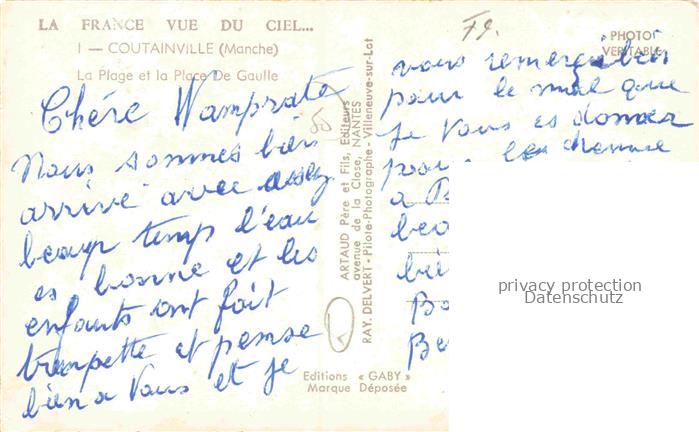 LA FRANCE VUE DU CIEL...
1 — COUTAINVILLE (Manche)
La Plage et la Place De Gaulle
PHOTO
VERITABLE
Chére
Nous sommes bien
arrivé avec assez
beaup temp l'eau
es bonne et les
enfants ont fait
trempette et pense
bien a Vous et je
ARTAUD Père et Fils, Editeurs
avenue de la Close, NANTES
RAY. DELVERT - Pilote-Photographe - Villeneuve-sur-Lot
Editions « GABY »
Marque Déposée
vous remerçi bien
pour le mal que
Je Vous es donner
pour les
a
privacy protection
Datenschutz